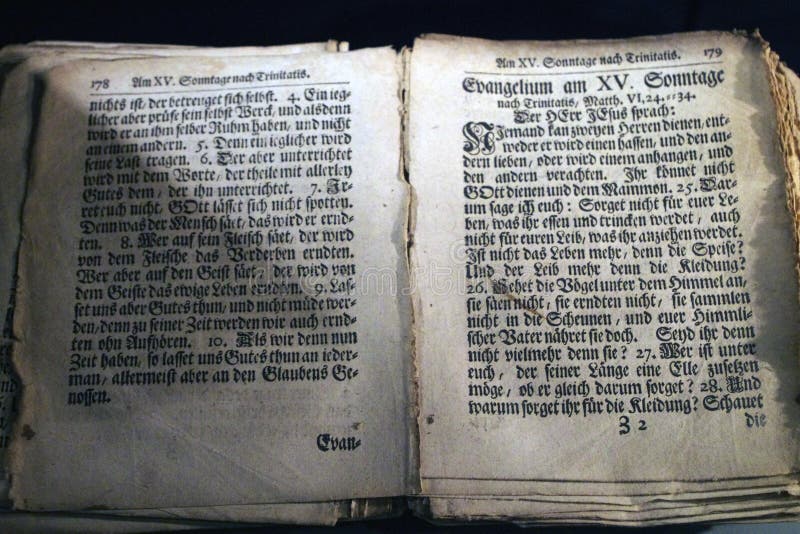 178 Am XV. Sonntage nach Trinitatis.
nichts ist, der betreuget sich selbst. 4. Ein ieg-
licher aber prüfe sein selbst Werck, und alsdenn
wird er an ihm selber Ruhm haben, und nicht
an einem andern. 5. Denn ein ieglicher wird
seine Last tragen. 6. Der aber unterrichtet
wird mit dem Worte, der theile mit allerley
Gutes dem, der ihn unterrichtet. 7. Ir-
ret euch nicht, GOtt lässt sich nicht spotten.
Denn was der Mensch säet, das wird er ernd-
ten. 8. Wer auf sein Fleisch säet, der wird
von dem Fleische das Verderben erndten.
Wer aber auf den Geist säet, der wird von
dem Geiste das ewige Leben erndten. 9. Las-
set uns aber Gutes thun, und nicht müde wer-
den, denn zu seiner Zeit werden wir auch ernd-
ten ohn Aufhören. 10. Als wir denn nun
Zeit haben, so lasset uns Gutes thun an ieder-
man, allermeist aber an den Glaubens Ge-
nossen.
Evan-
Am XV. Sonntage nach Trinitatis. 179
Evangelium am XV. Sonntage
nach Trinitatis, Matth. VI, 24.=34.
Der HErr JEsus sprach:
Niemand kan zweyen Herren dienen, ent-
weder er wird einen hassen, und den an-
dern lieben, oder wird einem anhangen, und
den andern verachten. Ihr könnet nicht
GOtt dienen und dem Mammon. 25. Dar-
um sage ich euch: Sorget nicht für euer Le-
ben, was ihr essen und trincken werdet, auch
nicht für euren Leib, was ihr anziehen werdet.
Ist nicht das Leben mehr, denn die Speise?
Und der Leib mehr denn die Kleidung?
26. Sehet die Vögel unter dem Himmel an,
sie säen nicht, sie erndten nicht, sie sammlen
nicht in die Scheunen, und euer Himmli-
scher Vater nähret sie doch. Seyd ihr denn
nicht vielmehr denn sie? 27. Wer ist unter
euch, der seiner Länge eine Elle zusetzen
möge, ob er gleich darum sorget? 28. Und
warum sorget ihr für die Kleidung? Schauet
Z 2 die
dreamstime